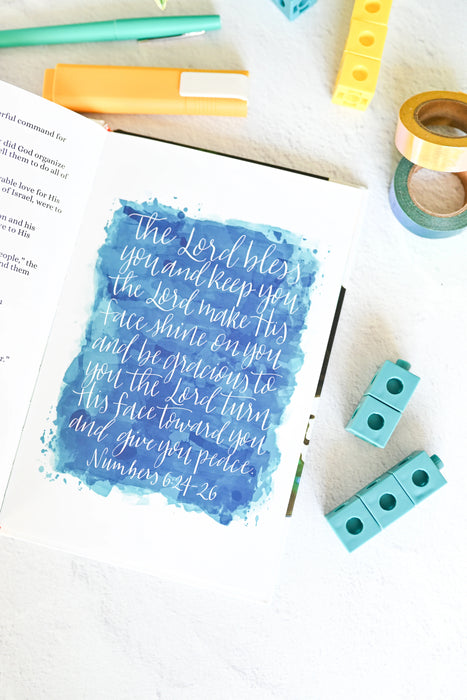 erful command for
did God organize
ell them to do all of
rable love for His
of Israel, were to
on and his
re to His
eople," the
nd them
The Lord bless
you and keep you
the Lord make His
face shine on you
and be gracious to
you the Lord turn
His face toward you
and give you peace.
Numbers 6:24-26